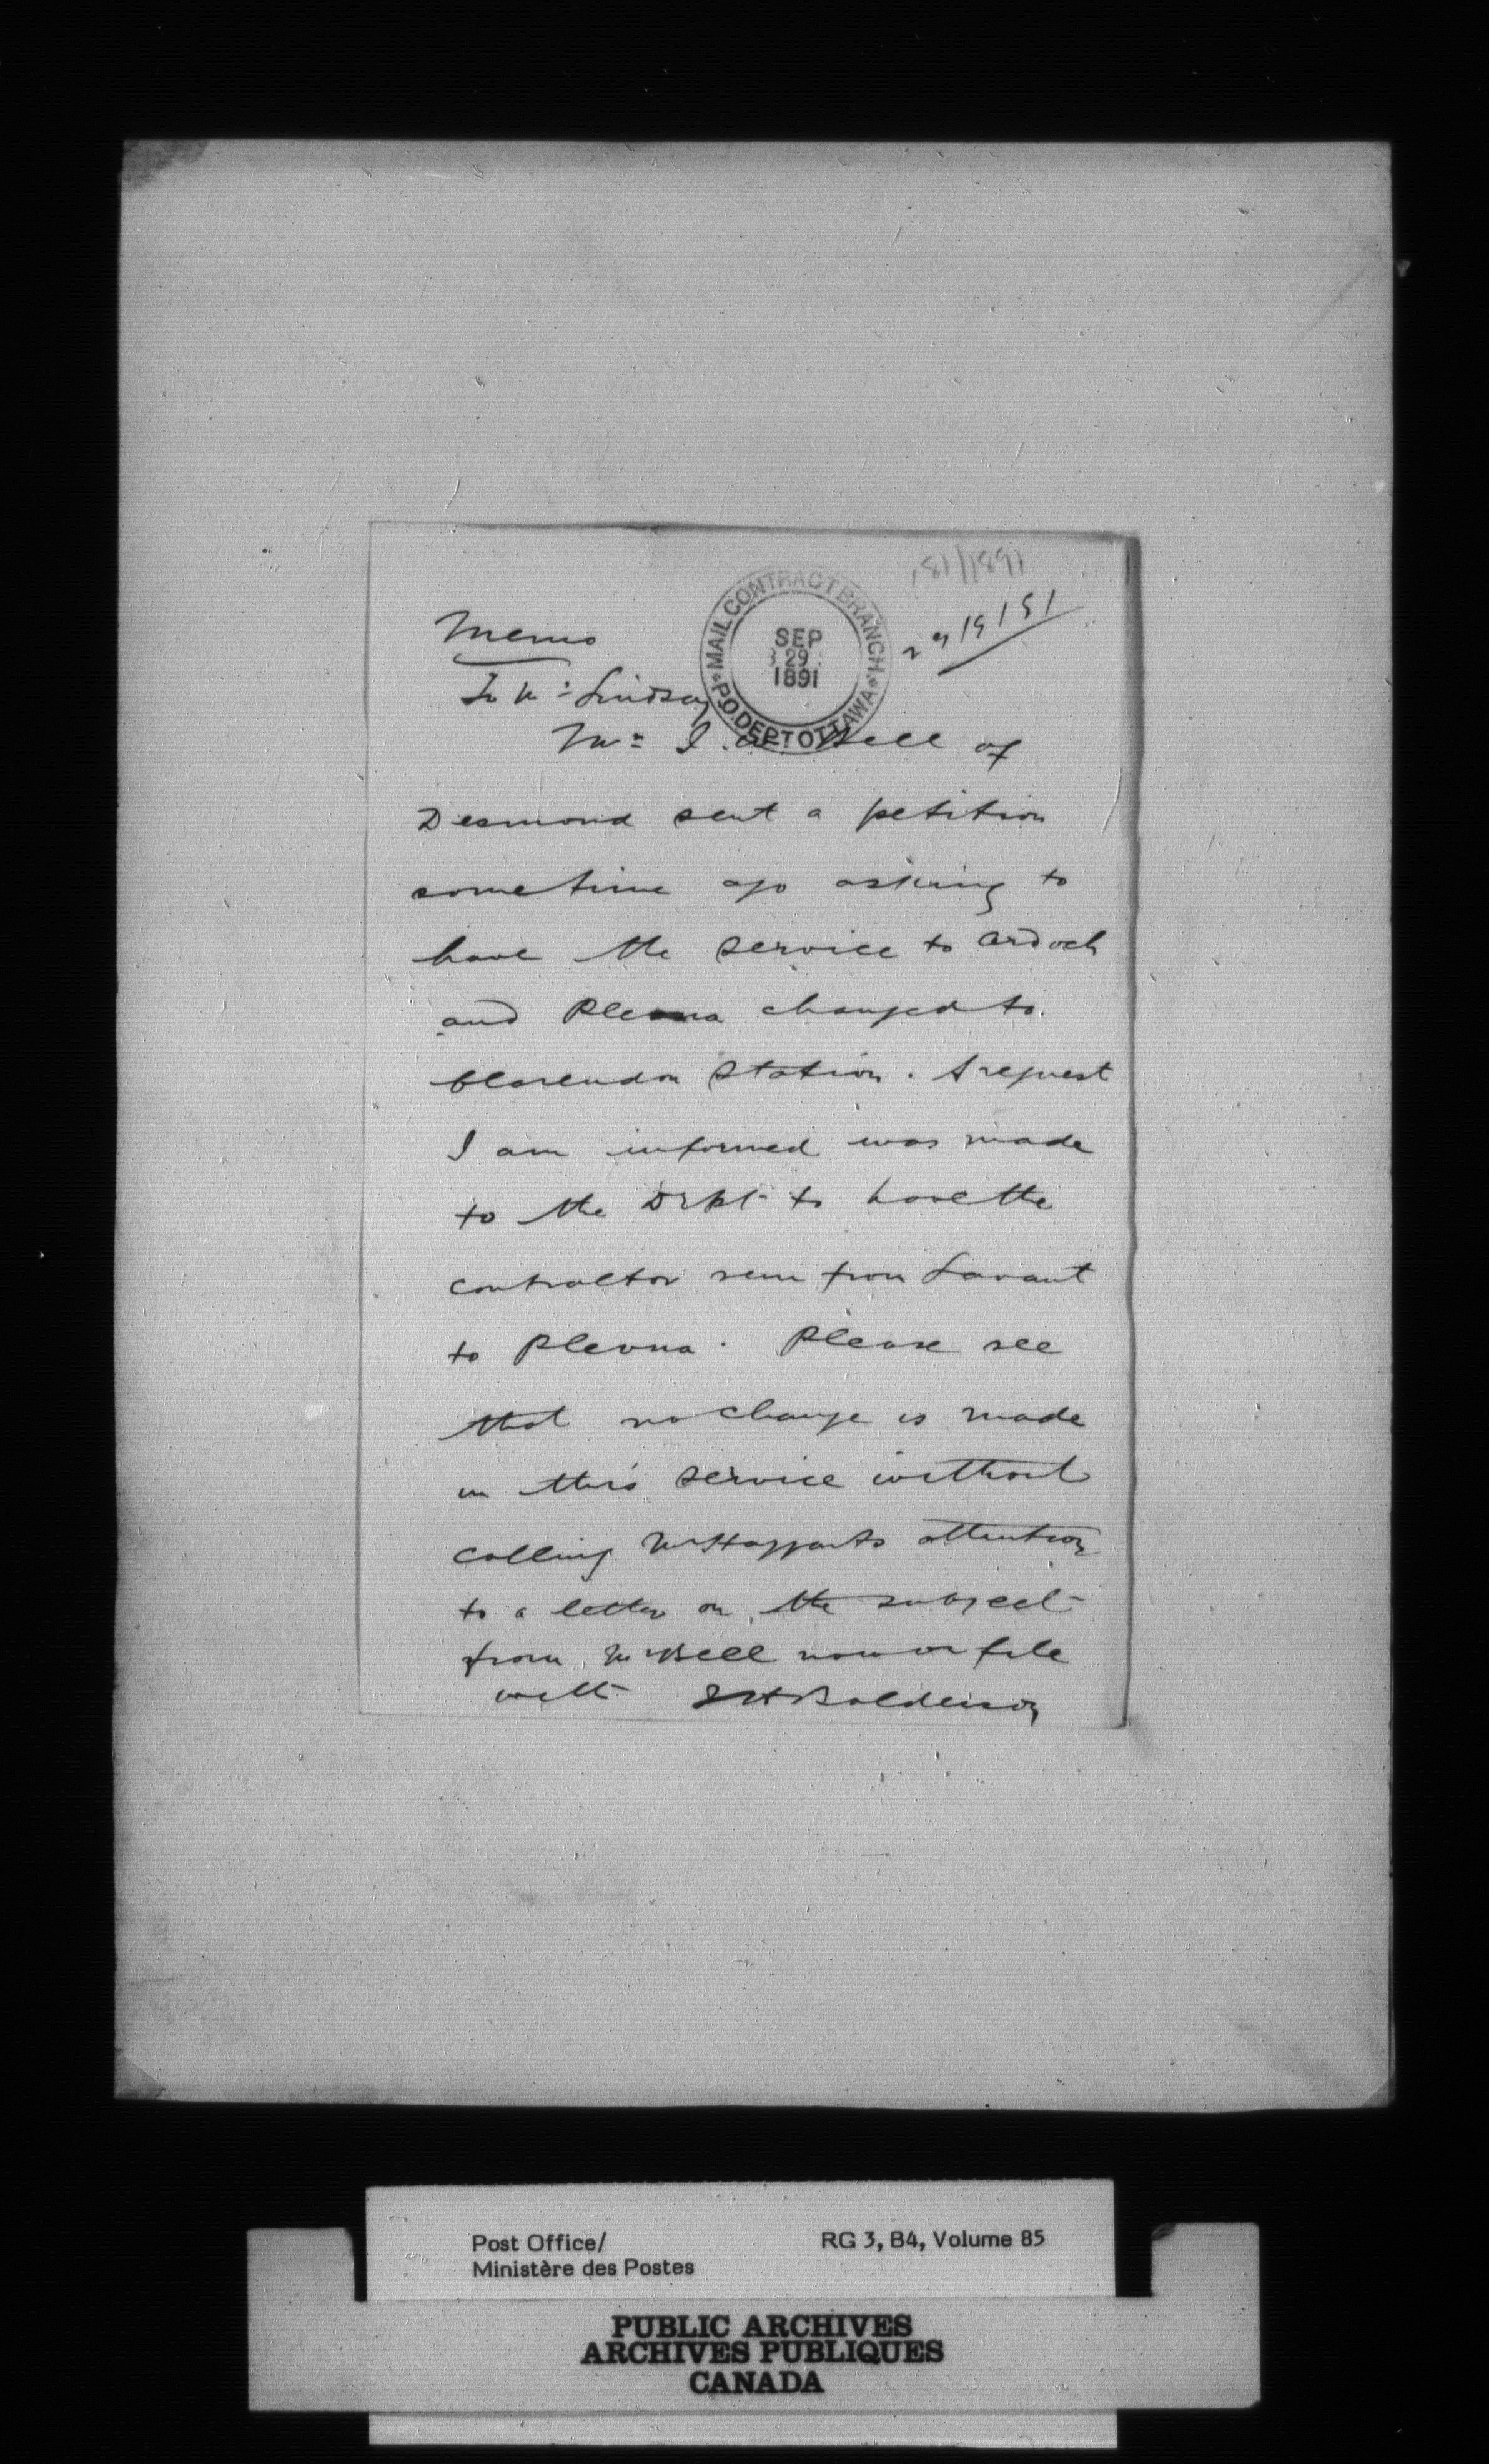 181/1891
Memo
29/9/91
MAIL CONTRACT BRANCH
SEP
29
1891
P.O. DEPT OTTAWA
To Mr Lindsay
Mr J. A. Bell of
Desmond sent a petition
sometime ago asking to
have the service to Ardoch
and Plevna changed to
Clarendon Station. A request
I am informed was made
to the Dept to have the
contractor run from Lavant
to Plevna. Please see
that no change is made
in this service without
calling Mr Haggarts attention
to a letter on the subject
from Mr Bell now on file
with JH Balderson
Post Office/
Ministère des Postes
RG 3, B4, Volume 85
PUBLIC ARCHIVES
ARCHIVES PUBLIQUES
CANADA